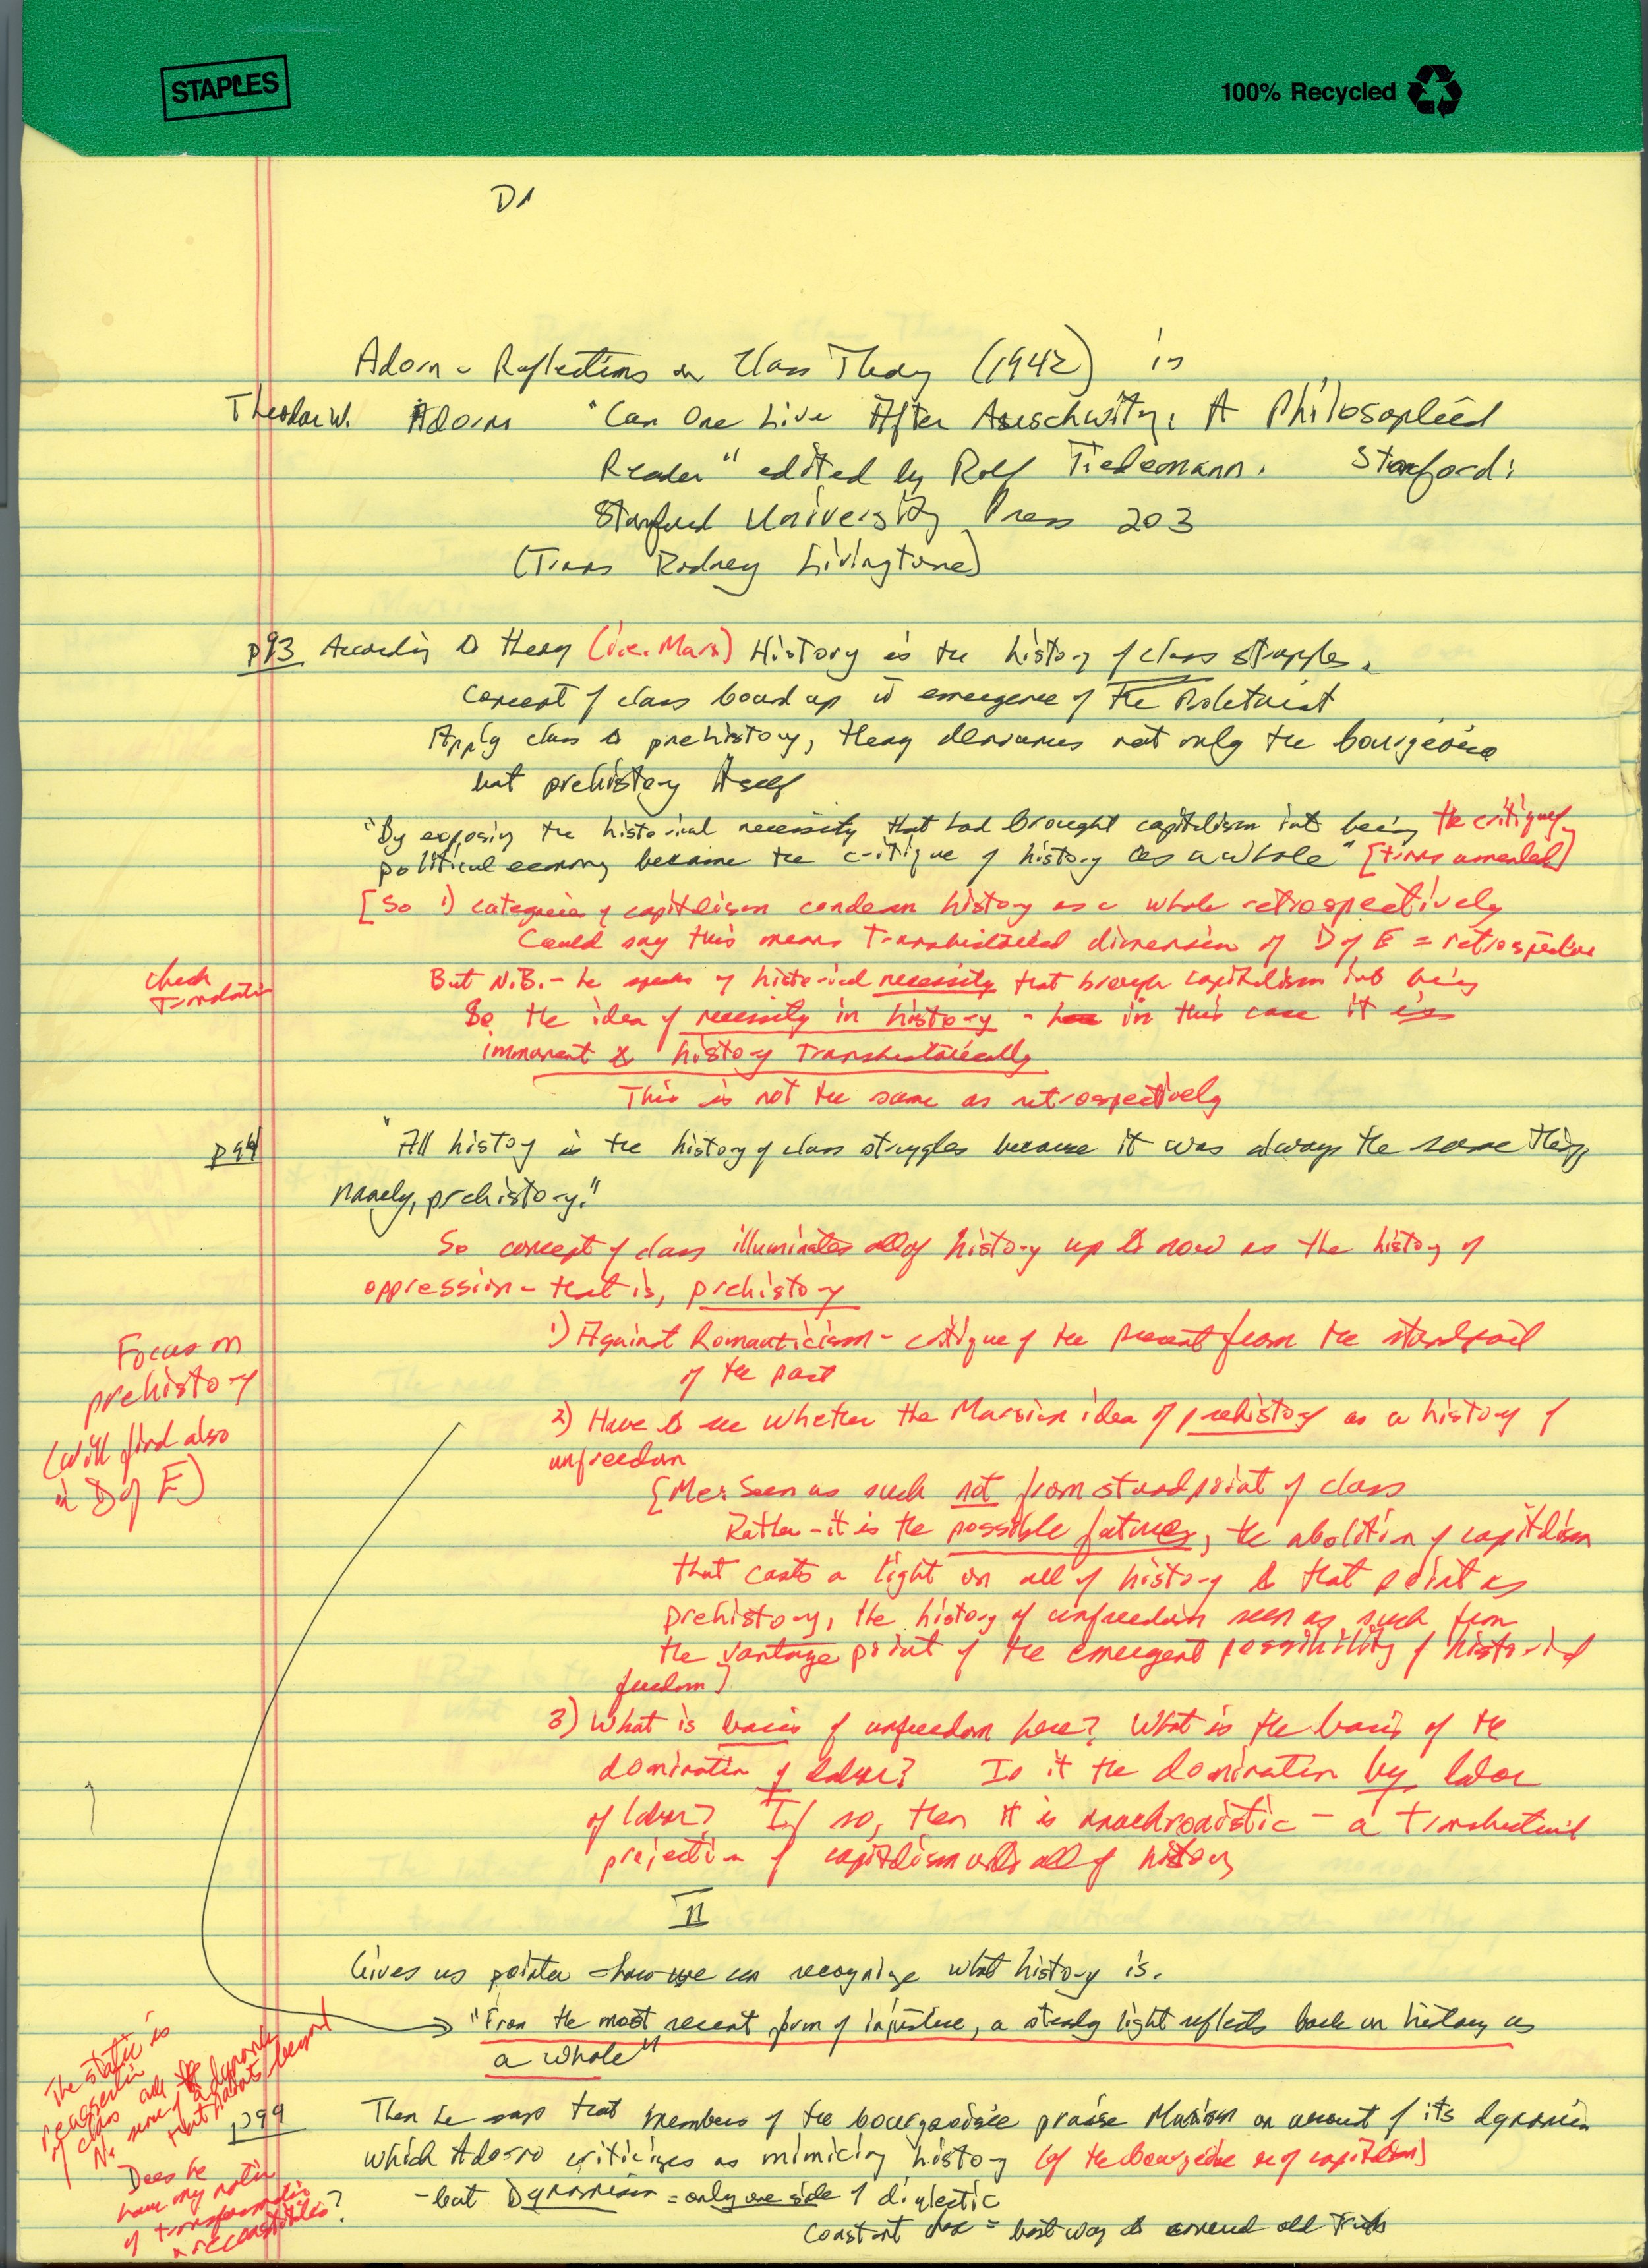 STAPLES
100% Recycled
D1
Adorn - Reflections on Class Theory (1942) in
Theodor W. Adorno "Can One Live After Auschwitz: A Philosophical
Reader" edited by Rolf Tiedemann. Stanford:
Stanford University Press 203
(Trans Rodney Livingtone)
p93 According to theory (i.e. Marx) History is the history of class struggles.
concept of class bound up w emergence of the Proletariat
Apply class to prehistory, theory denounces not only the bourgeoisie
but prehistory itself
"By exposing the historical necessity that had brought capitalism into being the critique of
political economy became the critique of history as a whole" [trans amended]
[So 1) categories of capitalism condemn history as a whole retrospectively
Could say this means transhistorical dimension of D of E = retrospective
check
translation
But N.B. - he speaks of historical necessity that brought capitalism into being
So the idea of necessity in history - in this case it is
immanent to history transhistorically
This is not the same as retrospectively
p94 "All history is the history of class struggles because it was always the same thing,
namely, prehistory."
So concept of class illuminates all of history up to now as the history of
oppression - that is, prehistory
1) Against Romanticism - critique of the present from the standpoint
of the past
Focus on
prehistory
(will find also
in D of E)
2) Have to see whether the Marxian idea of prehistory as a history of
unfreedom
[Me: Seen as such not from standpoint of class
Rather - it is the possible future, the abolition of capitalism
that casts a light on all of history to that point as
prehistory, the history of unfreedom seen as such from
the vantage point of the emergent possibility of historical
freedom]
3) What is basis of unfreedom here? What is the basis of the
domination of labor? Is it the domination by labor
of labor? If so, then it is anachronistic - a transhistorical
projection of capitalism onto all of history
II
Gives us pointer - how we can recognize what history is.
"From the most recent form of injustice, a steady light reflects back on history as
a whole"
The static is
reassertion
of class
No sense of a dynamic
that points beyond
p99 Then he says that members of the bourgeoisie praise Marxism on account of its dynamism
which Adorno criticizes as mimicing history (of the bourgeoisie of capitalism)
- but Dynamism = only one side of dialectic
Constant = best way to old
Does he
have my notion
of transformation
& reconstitution?